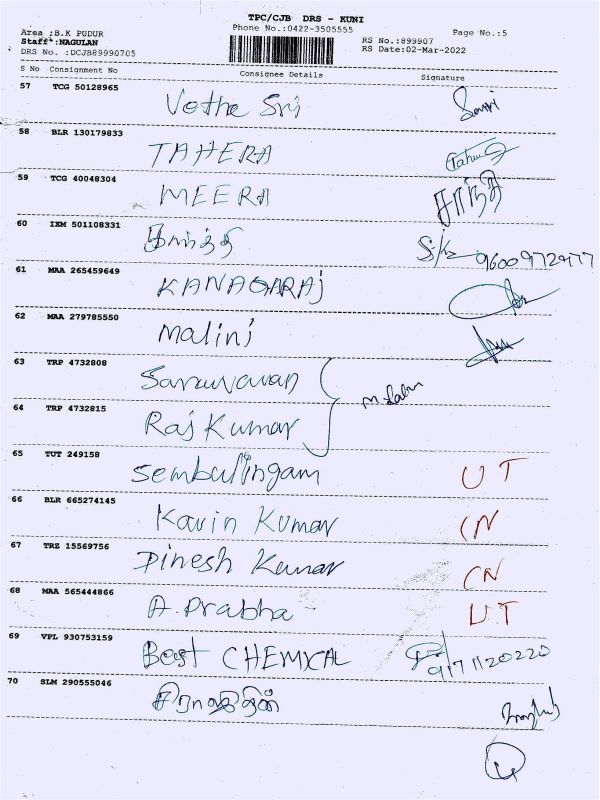 TPC/CJB DRS - KUNI
Phone No.:0422-3505555
Page No.:5
Area :B.K PUDUR
Staff :NAGULAN
DRS No. :DCJB89990705
RS No.:899907
RS Date:02-Mar-2022
S No Consignment No Consignee Details Signature
57 TCG 50128965 Vethe Sri
58 BLR 130179833 TAHERA
59 TCG 40048304 MEERA சாந்தி
60 IXM 501108331 9600972977
61 MAA 265459649 KANAGARAj
62 MAA 279785550 Malini
63 TRP 4732808 Saravanan
64 TRP 4732815 Raj Kumar
65 TUT 249158 Sembulingam UT
66 BLR 665274145 Kavin Kumar CN
67 TRZ 15569756 Dinesh Kumar CN
68 MAA 565444866 A. Prabha UT
69 VPL 930753159 Best CHEMICAL 9171120220
70 SLM 290555046